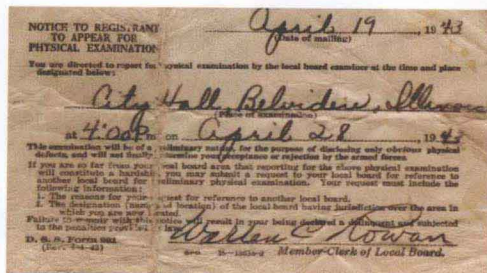 NOTICE TO REGISTRANT
TO APPEAR FOR
PHYSICAL EXAMINATION
April 19, 1943
(Date of mailing)
You are directed to report for physical examination by the local board examiner at the time and place
designated below:
City Hall, Belvidere, Illinois
(Place of examination)
at 4:00 Pm on April 28, 1943
This examination will be of a preliminary nature, for the purpose of disclosing only obvious physical
defects, and will not finally determine your acceptance or rejection by the armed forces.
If you are so far from your local board area that reporting for the above physical examination
will constitute a hardship you may submit a request to your local board for reference to
another local board for preliminary physical examination. Your request must include the
following information:
1. The reasons for your request for reference to another local board.
2. The designation (name or location) of the local board having jurisdiction over the area in
which you are now located.
Failure to comply with this notice will result in your being declared a delinquent and subjected
to the penalties provided by law.
Warren C. Rowan
D. S. S. Form
GPO
Member-Clerk of Local Board.